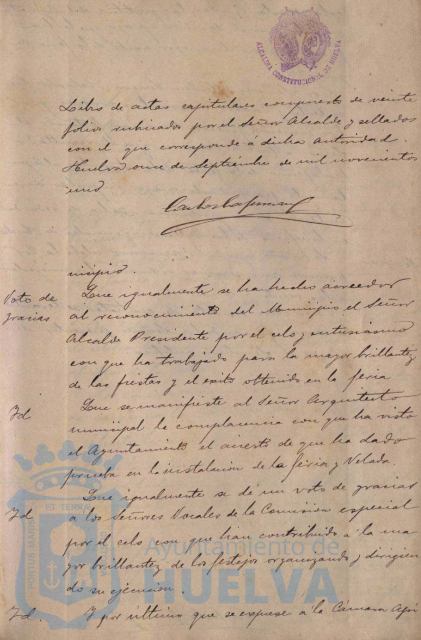 ALCALDIA CONSTITUCIONAL DE HUELVA
Libro de actas capitulares compuesto de veinte
folios rubricados por el Señor Alcalde y sellados
con el que corresponde á dicha autoridad.
Huelva once de Septiembre de mil novecientos
uno
nicipio.
Voto de gracias
Que igualmente se ha hecho acreedor
al reconocimiento del Municipio el Señor
Alcalde Presidente por el celo y entusiasmo
con que ha trabajado para la mayor brillantez
de las fiestas y el exito obtenido en la feria
Id
Que se manifieste al Señor Arquitecto
municipal la complacencia con que ha visto
el Ayuntamiento el acierto de que ha dado
prueba en la instalacion de la feria y Velada.
Id
Que igualmente se dé un voto de gracias
a los Señores Vocales de la Comision especial
por el celo con que han contribuido á la ma
yor brillantez de los festejos organizando y dirigien
do su ejecucion.
Id.
Y por último que se exprese á la Cámara Agri
PORTUS MARIS
ET TERRAE
Ayuntamiento de
HUELVA